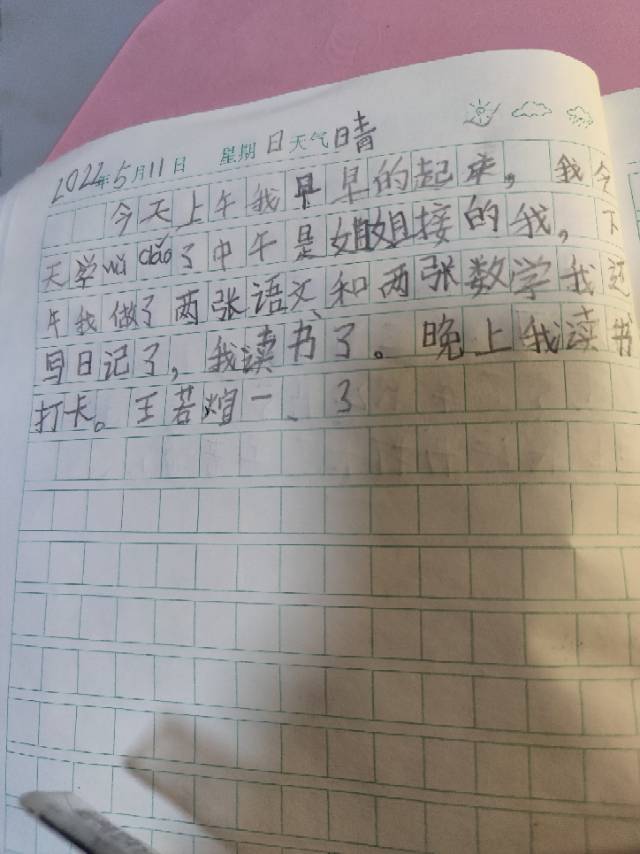 2022年5月11日 星期日天气晴
今天上午我早早的起来，我今
天学wǔ dǎo了中午是姐姐接的我，下
午我做了两张语文和两张数学我还
写日记了，我读书了。晚上我读书
打卡。王若煊一、3